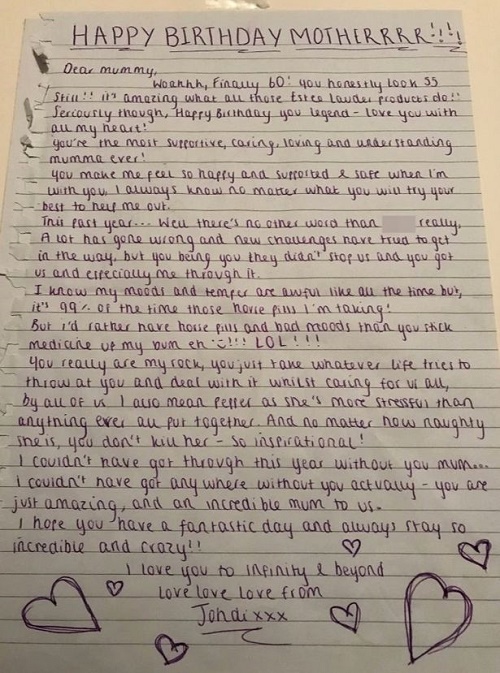 HAPPY BIRTHDAY MOTHERRRR!!!!
Dear mummy,
Woahhh, Finally 60! you honestly look 35
Still!! it's amazing what all those Estee Lauder products do!!
Seriously though, Happy Birthday you legend - love you with
all my heart!
you're the most supportive, caring, loving and understanding
mumma ever!
you make me feel so happy and supported & safe when I'm
with you, I always know no matter what you will try your
best to help me out.
This past year... Well there's no other word than really,
A lot has gone wrong and new challenges have tried to get
in the way, but you being you they didn't stop us and you got
us and especially me through it.
I know my moods and temper are awful like all the time but,
it's 99% of the time those horse pills I'm taking!
But I'd rather have horse pills and bad moods than you stick
medicine up my bum eh !!! LOL!!!
You really are my rock, you just take whatever life tries to
throw at you and deal with it whilst caring for us all,
by all of us I also mean Pepper as she's more stressful than
anything ever all put together. And no matter how naughty
she is, you don't kill her - So inspirational!
I couldn't have got through this year without you mum...
I couldn't have got any where without you actually - you are
just amazing, and an incredible mum to us.
I hope you have a fantastic day and always stay so
incredible and crazy!!
I love you to infinity & beyond
love love love from
Jondi xxx